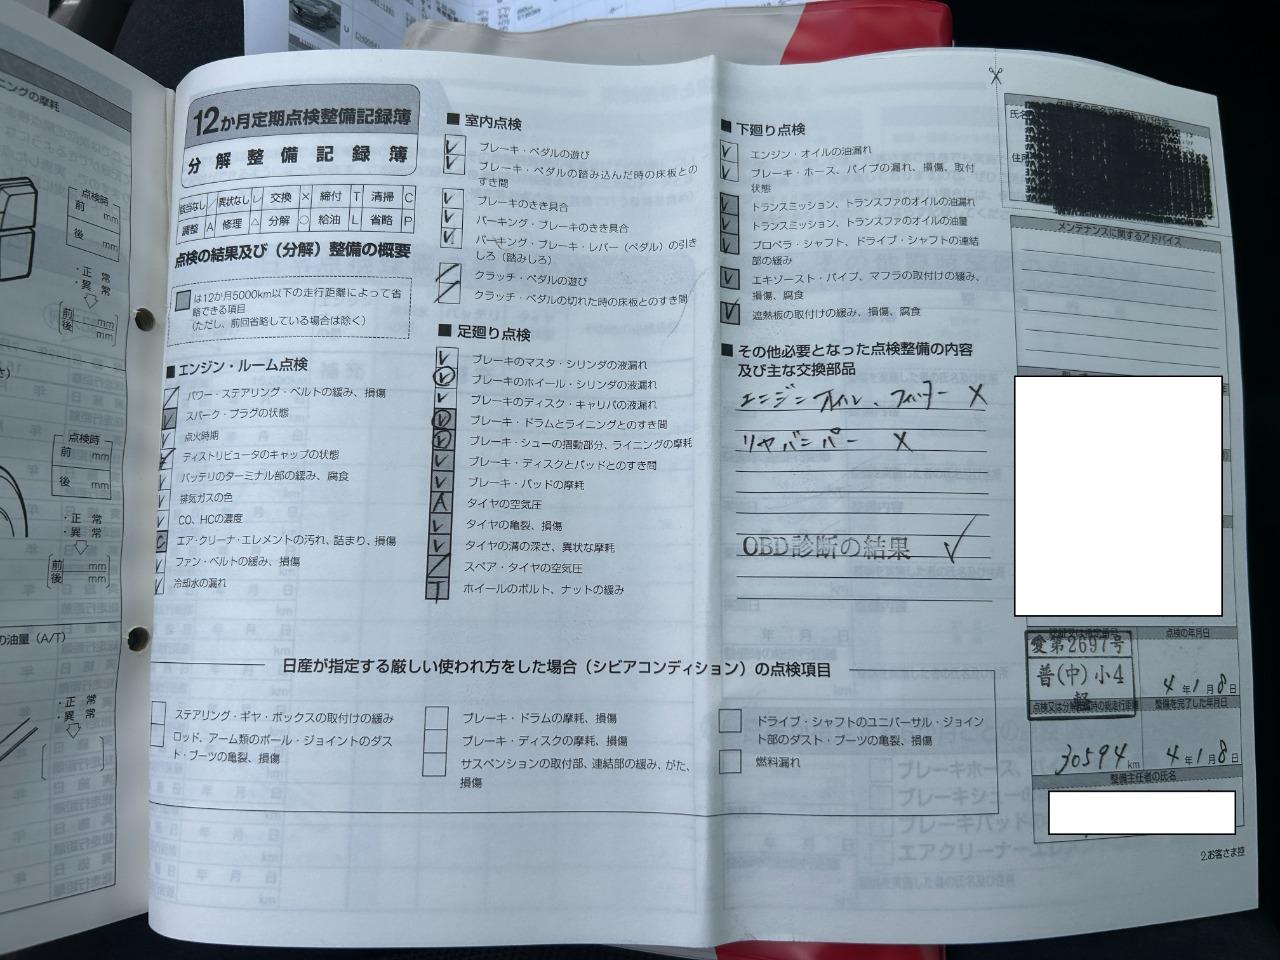 ニングの摩耗
点検時
前 mm
後 mm
・正 常
・異 常
前 mm
後 mm
点検時
前 mm
後 mm
・正 常
・異 常
前 mm
後 mm
の油量（A/T）
・正 常
・異 常
12か月定期点検整備記録簿
分解整備記録簿
該当なし / 異状なし レ 交換 × 締付 T 清掃 C
調整 A 修理 △ 分解 ○ 給油 L 省略 P
点検の結果及び（分解）整備の概要
は12か月5000km以下の走行距離によって省
略できる項目
(ただし、前回省略している場合は除く)
■ エンジン・ルーム点検
/ パワー・ステアリング・ベルトの緩み、損傷
レ スパーク・プラグの状態
レ 点火時期
ディストリビュータのキャップの状態
レ バッテリのターミナル部の緩み、腐食
レ 排気ガスの色
レ CO、HCの濃度
C エア・クリーナ・エレメントの汚れ、詰まり、損傷
レ ファン・ベルトの緩み、損傷
レ 冷却水の漏れ
■ 室内点検
レ ブレーキ・ペダルの遊び
レ ブレーキ・ペダルの踏み込んだ時の床板との
すき間
レ ブレーキのきき具合
レ パーキング・ブレーキのきき具合
レ パーキング・ブレーキ・レバー（ペダル）の引き
しろ（踏みしろ）
/ クラッチ・ペダルの遊び
/ クラッチ・ペダルの切れた時の床板とのすき間
■ 足廻り点検
レ ブレーキのマスタ・シリンダの液漏れ
レ ブレーキのホイール・シリンダの液漏れ
レ ブレーキのディスク・キャリパの液漏れ
レ ブレーキ・ドラムとライニングとのすき間
レ ブレーキ・シューの摺動部分、ライニングの摩耗
レ ブレーキ・ディスクとパッドとのすき間
レ ブレーキ・パッドの摩耗
A タイヤの空気圧
レ タイヤの亀裂、損傷
レ タイヤの溝の深さ、異状な摩耗
/ スペア・タイヤの空気圧
T ホイールのボルト、ナットの緩み
■ 下廻り点検
レ エンジン・オイルの油漏れ
レ ブレーキ・ホース、パイプの漏れ、損傷、取付
状態
レ トランスミッション、トランスファのオイルの油漏れ
レ トランスミッション、トランスファのオイルの油量
レ プロペラ・シャフト、ドライブ・シャフトの連結
部の緩み
レ エキゾースト・パイプ、マフラの取付けの緩み、
損傷、腐食
レ 遮熱板の取付けの緩み、損傷、腐食
■ その他必要となった点検整備の内容
及び主な交換部品
エンジンオイル、フィルター ×
リヤバンパー ×
OBD診断の結果 ✓
日産が指定する厳しい使われ方をした場合（シビアコンディション）の点検項目
ステアリング・ギヤ・ボックスの取付けの緩み
ロッド、アーム類のボール・ジョイントのダス
ト・ブーツの亀裂、損傷
ブレーキ・ドラムの摩耗、損傷
ブレーキ・ディスクの摩耗、損傷
サスペンションの取付部、連結部の緩み、がた、
損傷
ドライブ・シャフトのユニバーサル・ジョイン
ト部のダスト・ブーツの亀裂、損傷
燃料漏れ
氏名
住所
メンテナンスに関するアドバイス
愛第2697号
普(中)小4
軽
点検の年月日
4年1月8日
点検又は分解整備時の総走行距離
30594 km
整備を完了した年月日
4年1月8日
整備主任者の氏名
2.お客さま控